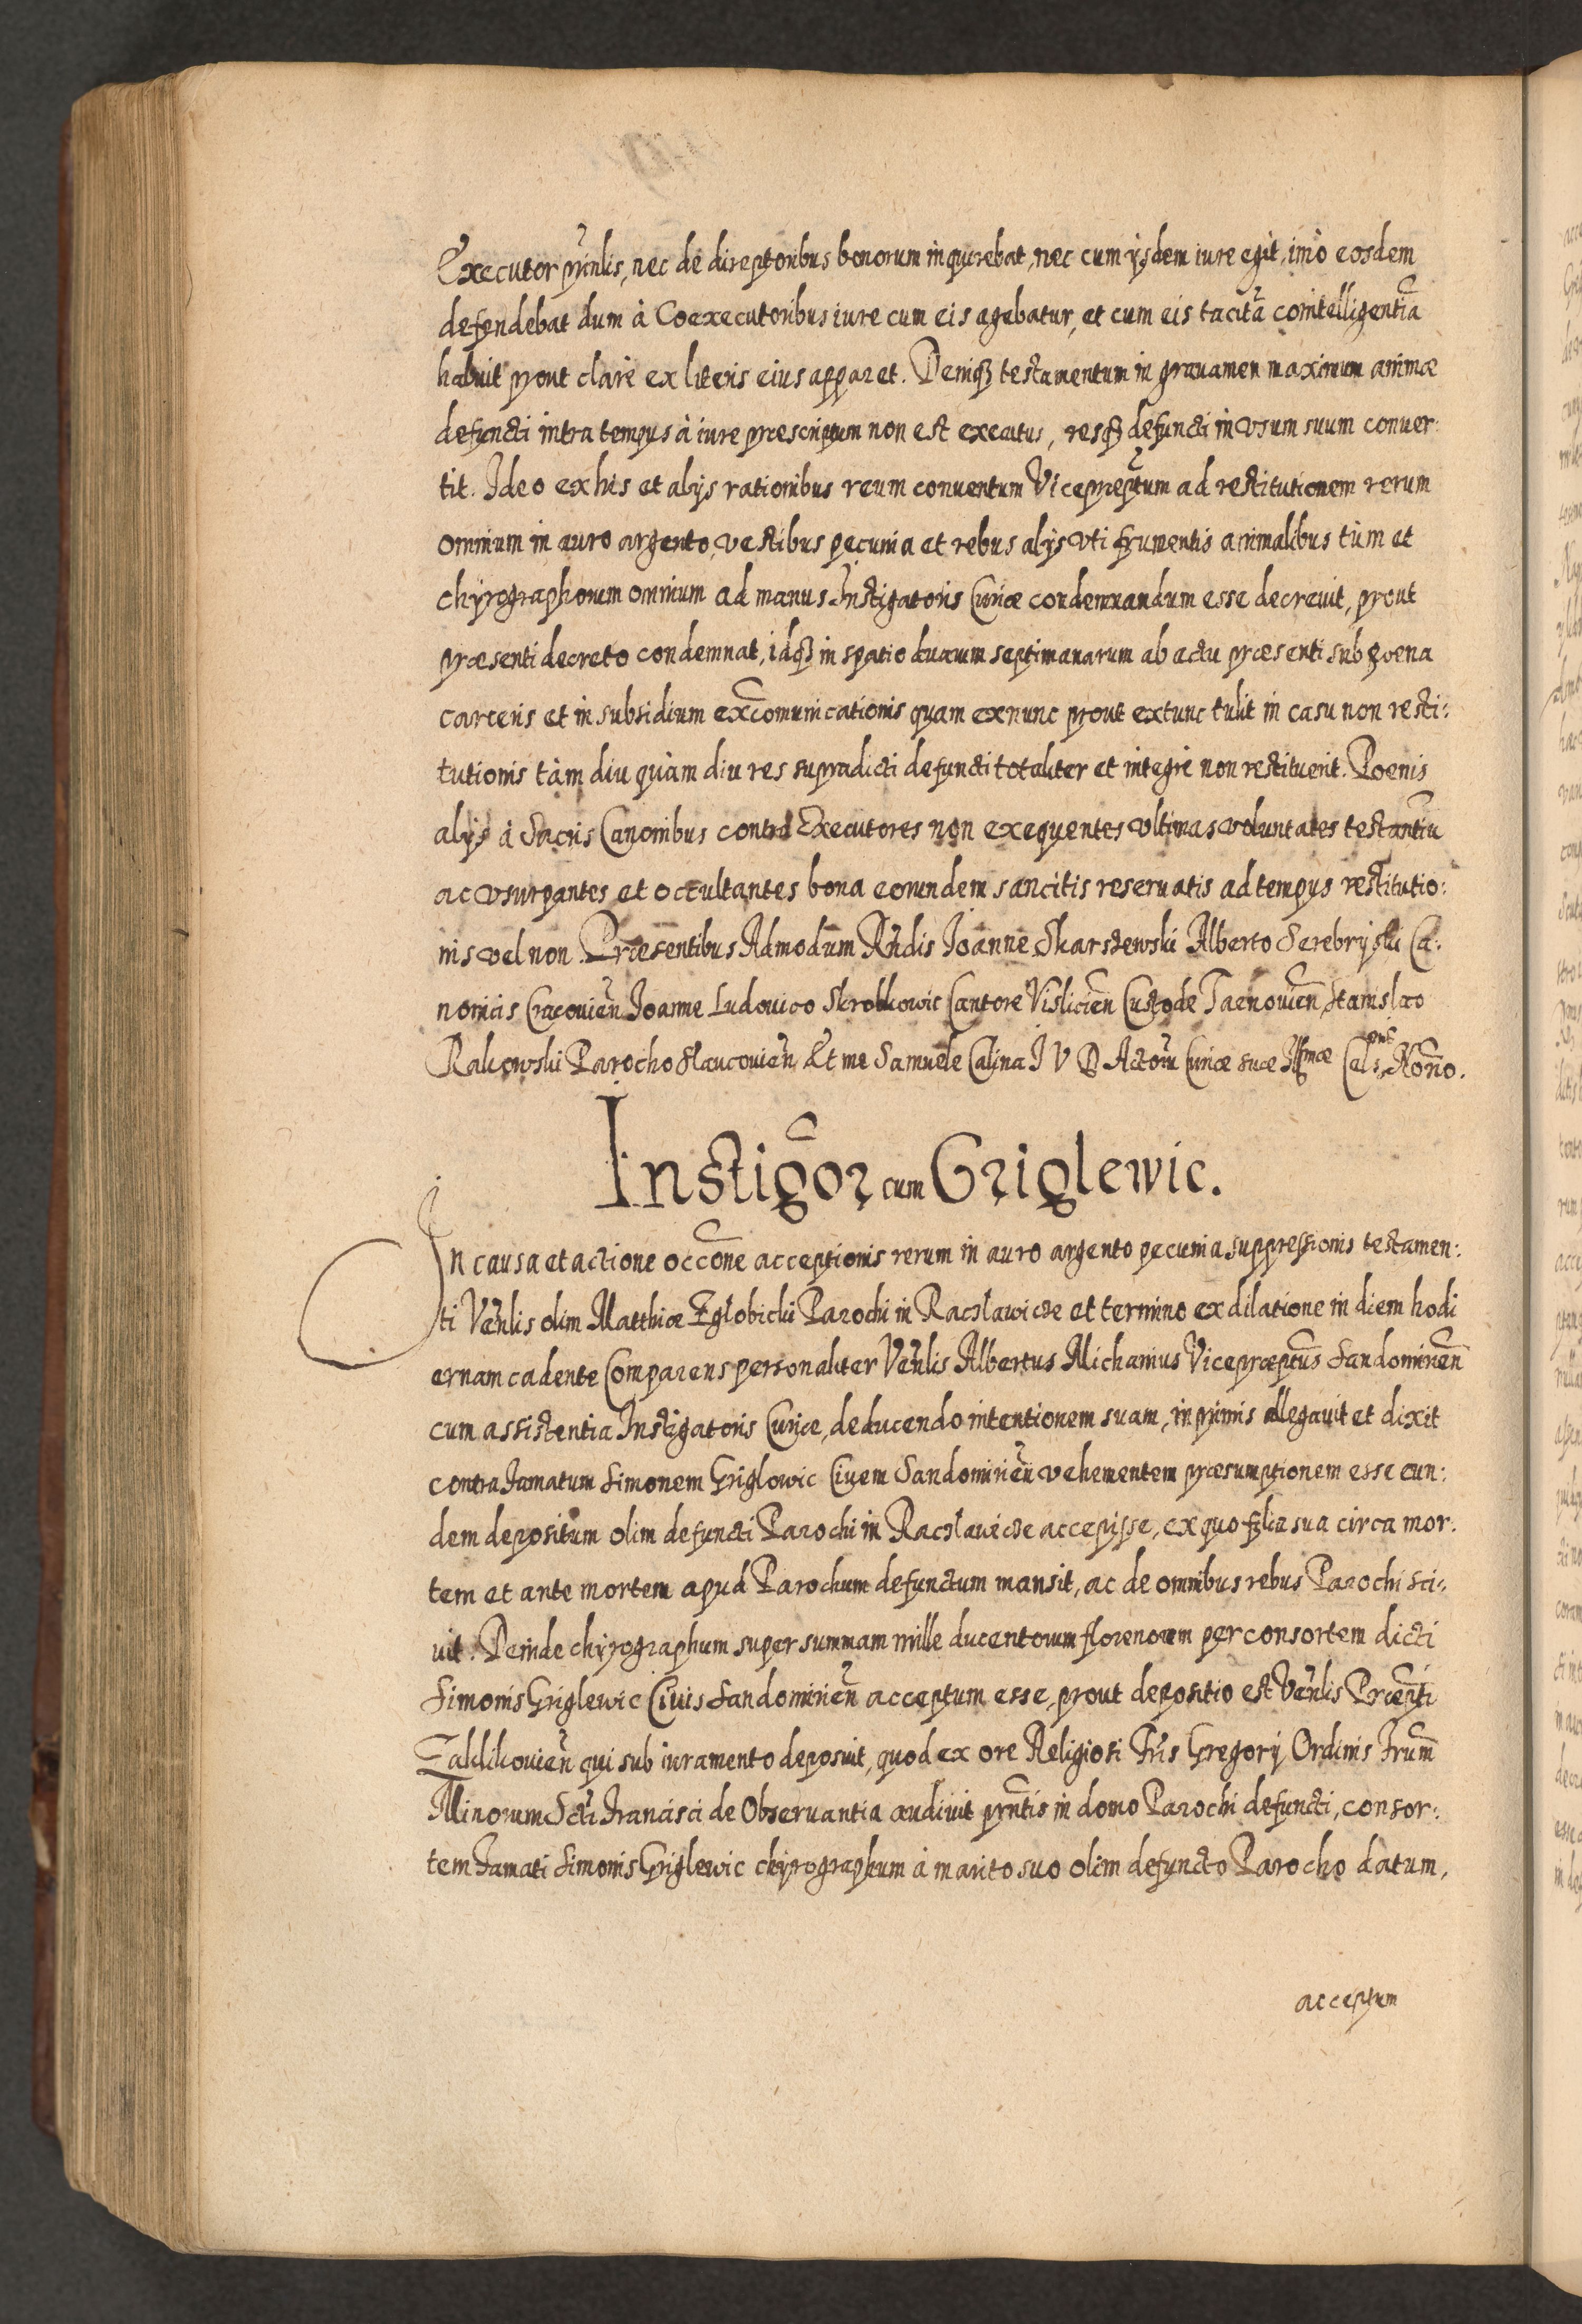 Executor prinlis, nec de direptoribus bonorum inquirebat, nec cum ijsdem iure egit, imò eosdem
defendebat dum à Coexecutoribus iure cum eis agebatur, et cum eis tacitã cointelligentiã
habuit prout clarè ex literis eius apparet. Deniqȝ testamentum in grauamen maximum animæ
defuncti intra tempus à iure præscriptum non est executus, resqȝ defuncti in vsum suum conuer:
tit. Ideo ex his et alijs rationibus reum conuentum Vicepræptum ad restitutionem rerum
omnium in auro argento, vestibus pecunia et rebus alijs vti frumentis animalibus tùm et
chyrographorum omnium ad manus Instigatoris Curiæ condemnandum esse decreuit, prout
præsenti decreto condemnat, idqȝ in spatio duarum septimanarum ab actu præsenti sub poena
carceris et in subsidium excõmunicationis quam exnunc prout extunc tulit in casu non resti:
tutionis tàm diu quàm diu res supradicti defuncti totaliter et integrè non restituerit. Poenis
alijs à Sacris Canonibus contra Executores non exequentes vltimas voluntates testantiũ
ac vsurpantes et occultantes bona eorundem sancitis reseruatis ad tempus restitutio:
nis vel non. Præsentibus Admodum Rñdis Ioanne Skarszewski Alberto Serebryski Ca:
nonicis Cracouieñ Ioanne Ludouico Skrobkowic Cantore Visliciẽn Custode Tarnouieñ, Stanislao
Rakowski Parocho Slaucouieñ Et me Samuele Calina I V D Actorũ Curiæ suæ Illmæ Celsnis Notrio.
Instigõr cum Griglewic.
In causa et actione occõne acceptionis rerum in auro argento pecunia suppressionis testamen:
ti Veñlis olim Matthiæ Zglobicki Parochi in Racslawicze et termino ex dilatione in diem hodi
ernam cadente Comparens personaliter Veñlis Albertus Michanius Vicepræptus Sandomirieñ
cum assistentia Instigatoris Curiæ, deducendo intentionem suam, inprimis allegauit et dixit
contra Famatum Simonem Griglowic Ciuem Sandomirieñ vehementem præsumptionem esse eun:
dem depositum olim defuncti Parochi in Racslawicze accepisse, ex quo filia sua circa mor:
tem et ante mortem apud Parochum defunctum mansit, ac de omnibus rebus Parochi sci:
uit. Deinde chyrographum super summam mille ducentorum florenorum per consortem dicti
Simonis Griglewic Ciuis Sandomirieñ acceptum esse, prout depositio est Veñlis Præpti
Zaklikouieñ qui sub iuramento deposuit, quod ex ore Religiosi Fris Gregorij Ordinis Frum
Minorum Scti Francisci de Obseruantia audiuit prñtis in domo Parochi defuncti, consor:
tem Famati Simonis Griglewic chyrographum à marito suo olim defuncto Parocho datum,
acceptum